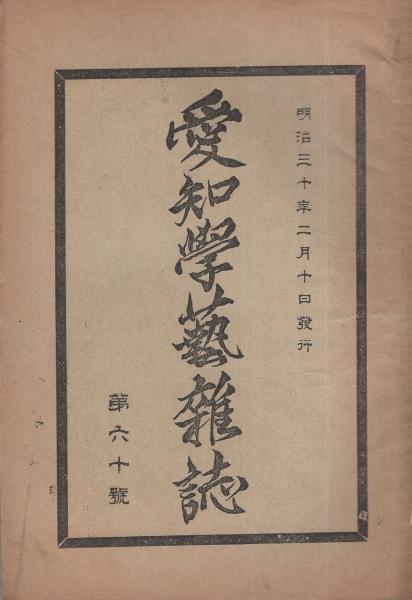 明治三十年二月十日發行
愛知學藝雜誌
第六十號